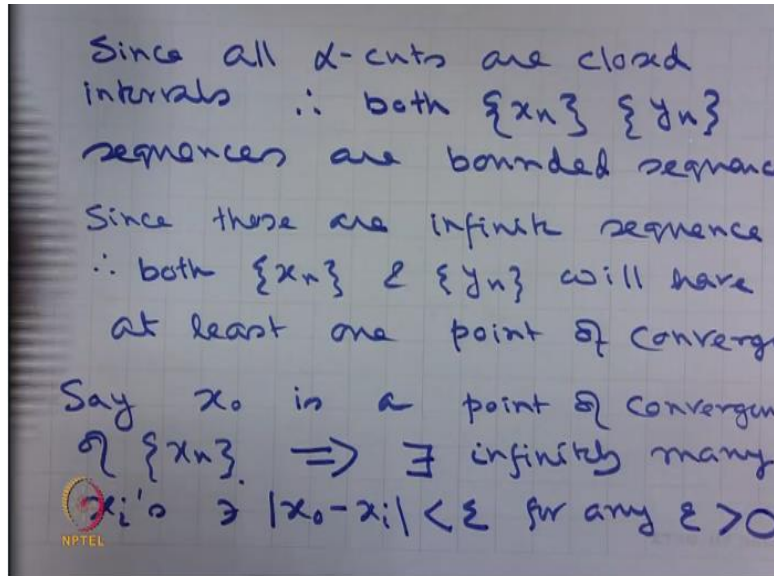 Since all α-cuts are closed
intervals ∴ both {xn} {yn}
sequences are bounded sequenc
Since these are infinite sequence
∴ both {xn} & {yn} will have
at least one point of converg
Say x₀ is a point of convergen
of {xn} ⇒ ∃ infinitely many
xi's ∋ |x₀-xi| < ε for any ε > 0
NPTEL